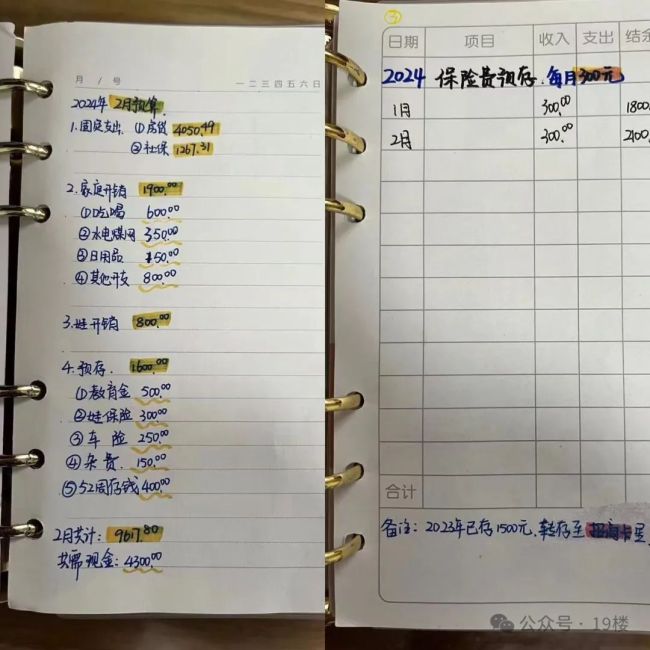 月 / 号 一 二 三 四 五 六 日
2024年 2月预算
1.固定支出 ①房贷 4050.49
②社保 1267.31
2.家庭开销 1900.00
①吃喝 600.00
②水电煤网 350.00
③日用品 150.00
④其他开支 800.00
3.娃开销 800.00
4.预存. 1600.00
①教育金 500.00
②娃保险 300.00
③车险 250.00
④杂费. 150.00
⑤52周存钱 400.00
2月共计: 9617.80
共需现金: 4300.00
③
日期 项目 收入 支出 结余
2024 保险费预存.每月300元
1月 300.00 1800
2月 300.00 2100
合计
备注: 2023年已存1500元,转存至招商卡里
公众号·19楼